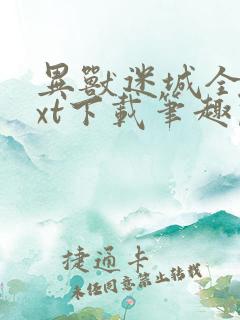 異獸迷城全
xt下載筆趣
捷通卡
未任同意禁止轉載